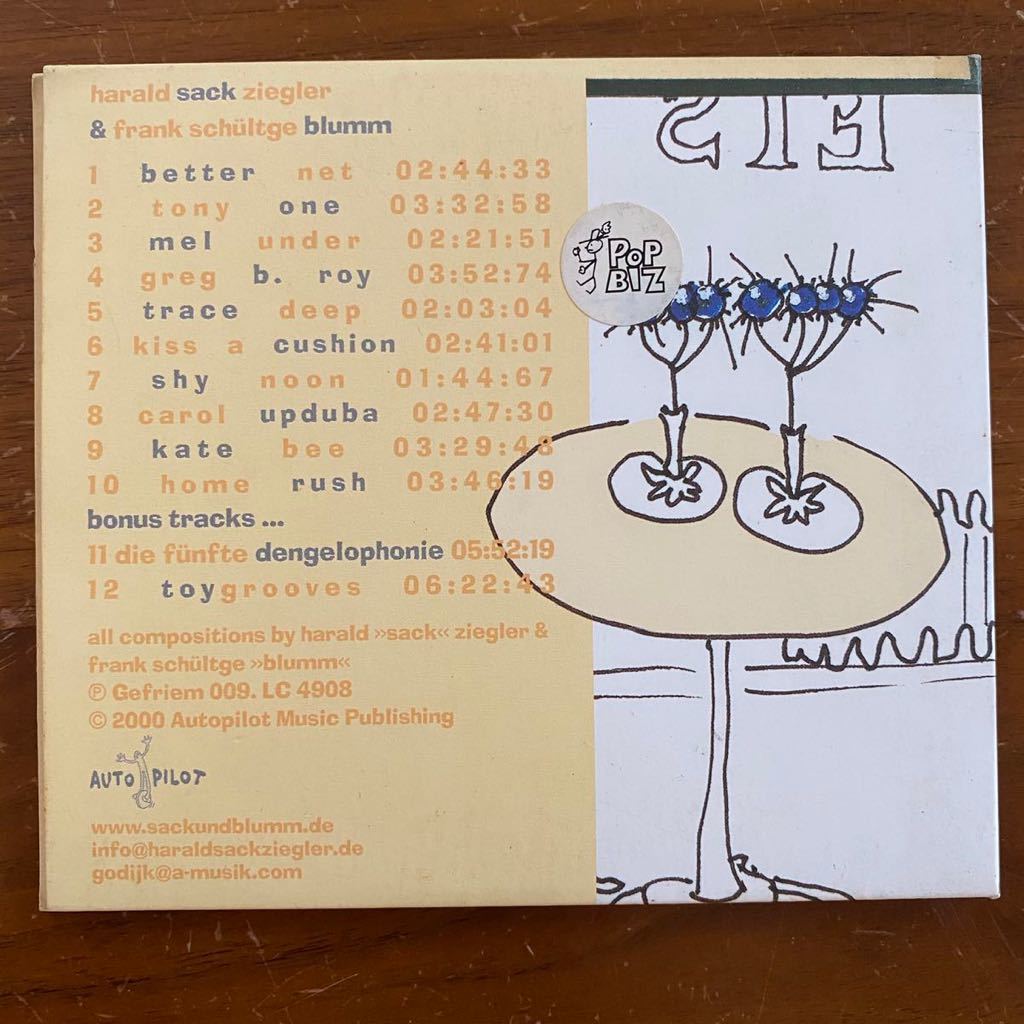 harald sack ziegler
& frank schültge blumm
1 better net 02:44:33
2 tony one 03:32:58
3 mel under 02:21:51
4 greg b. roy 03:52:74
5 trace deep 02:03:04
6 kiss a cushion 02:41:01
7 shy noon 01:44:67
8 carol upduba 02:47:30
9 kate bee 03:29:48
10 home rush 03:46:19
bonus tracks ...
11 die fünfte dengelophonie 05:52:19
12 toygrooves 06:22:43
all compositions by harald »sack« ziegler &
frank schültge »blumm«
℗ Gefriem 009. LC 4908
© 2000 Autopilot Music Publishing
AUTOPILOT
www.sackundblumm.de
info@haraldsackziegler.de
godijk@a-musik.com
EIS
POP
BIZ